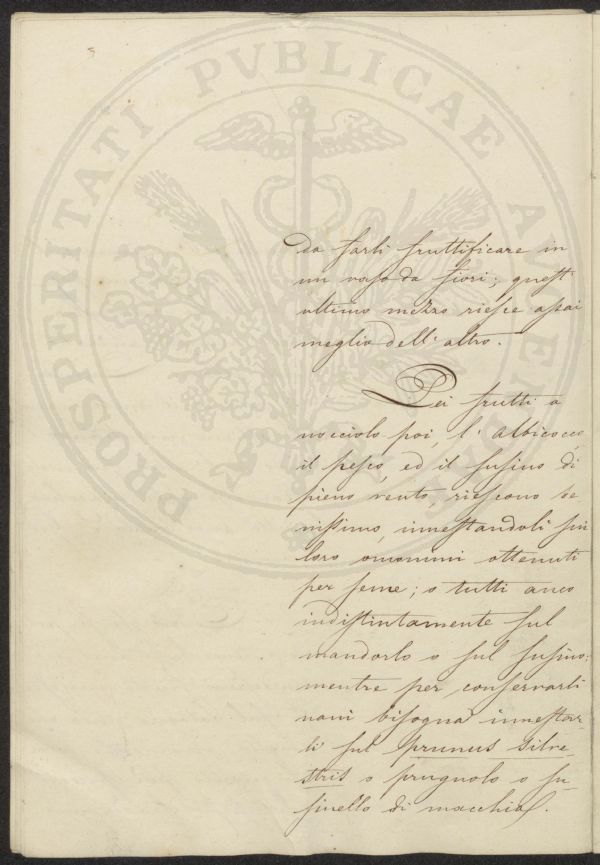 PROSPERITATI PVBLICAE AVGENDAE
da farli fruttificare in
un vaso da fiori; quest
ultimo mezzo riesce assai
meglio dell' altro.
Dei frutti a
nocciolo poi, l' albicocco,
il pesco, ed il susino di
pieno vento, riescono be
nissimo, innestandoli sui
loro omonimi ottenuti
per seme; o tutti anco
indistintamente sul
mandorlo o sul susino:
mentre per conservarli
nani bisogna innestar-
li sul prunus silve-
stris o prugnolo o su-
sinello di macchia.